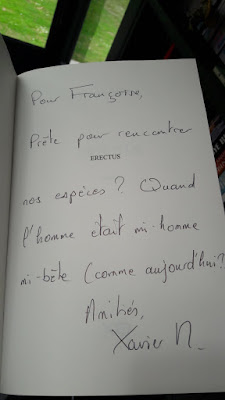 Pour Françoise,
Prête pour rencontrer
ERECTUS
nos espèces ? Quand
l'homme était mi-homme
mi-bête (comme aujourd'hui ?
Amitiés,
Xavier M.